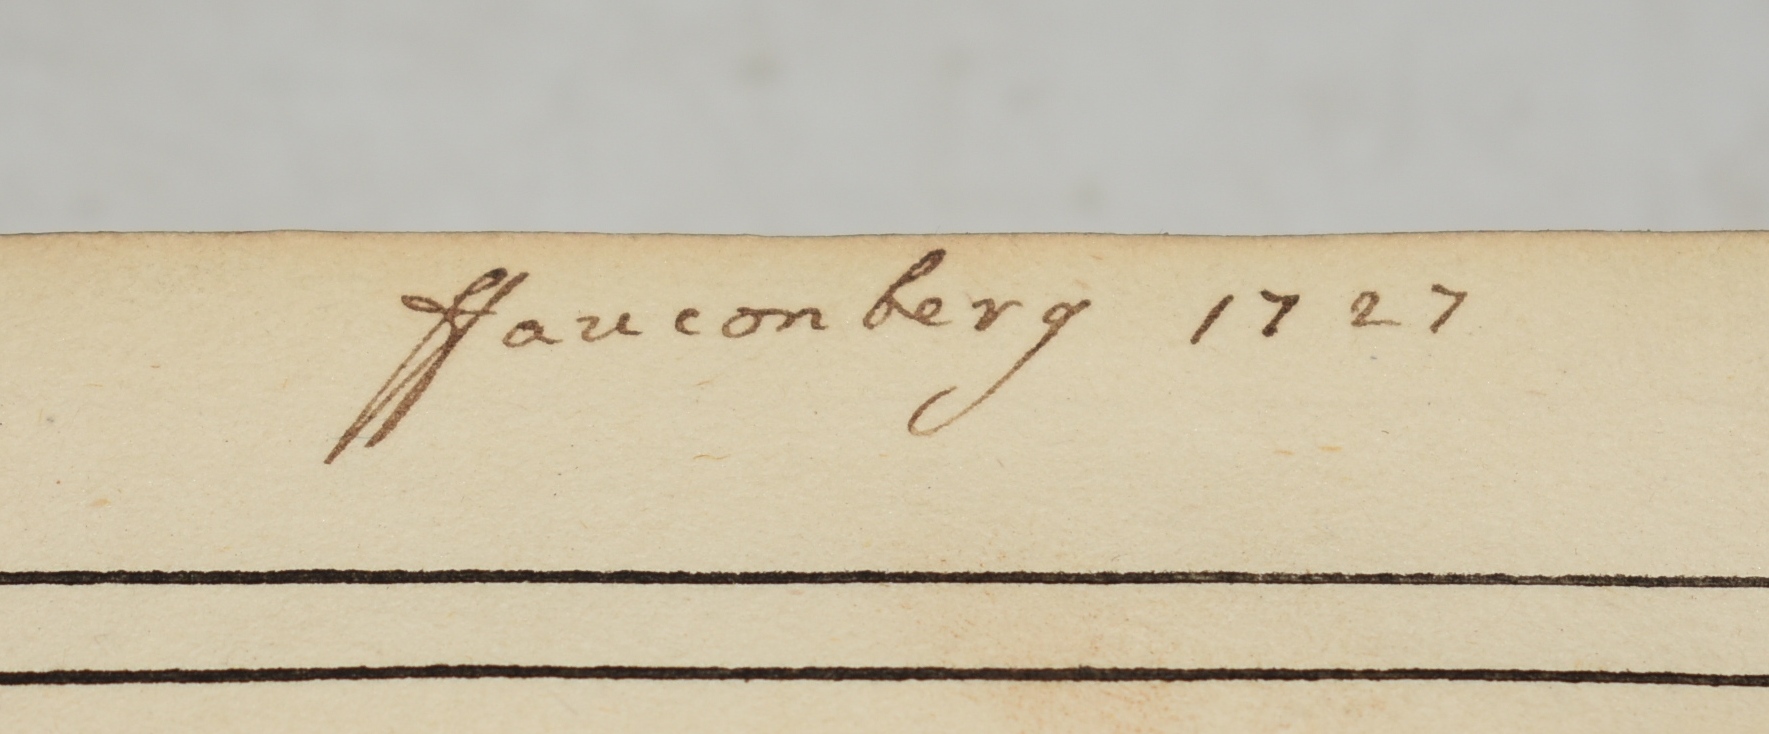 ffauconberg 1727